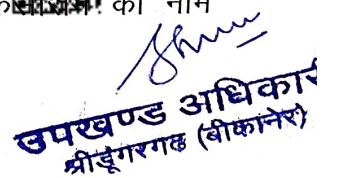 का नाम
उपखण्ड अधिकारी
श्रीडूंगरगढ (बीकानेर)